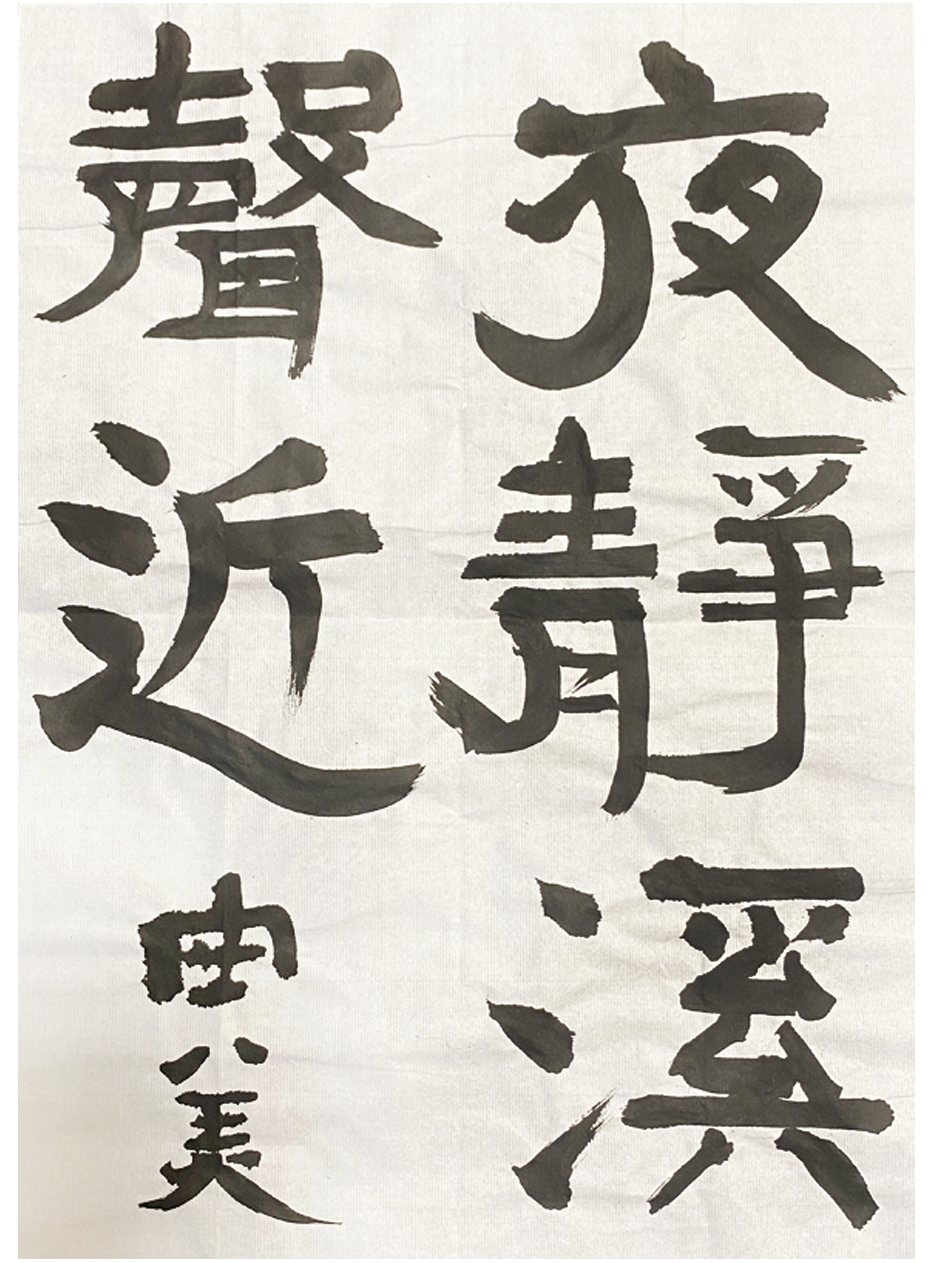 夜靜溪
聲近
由美